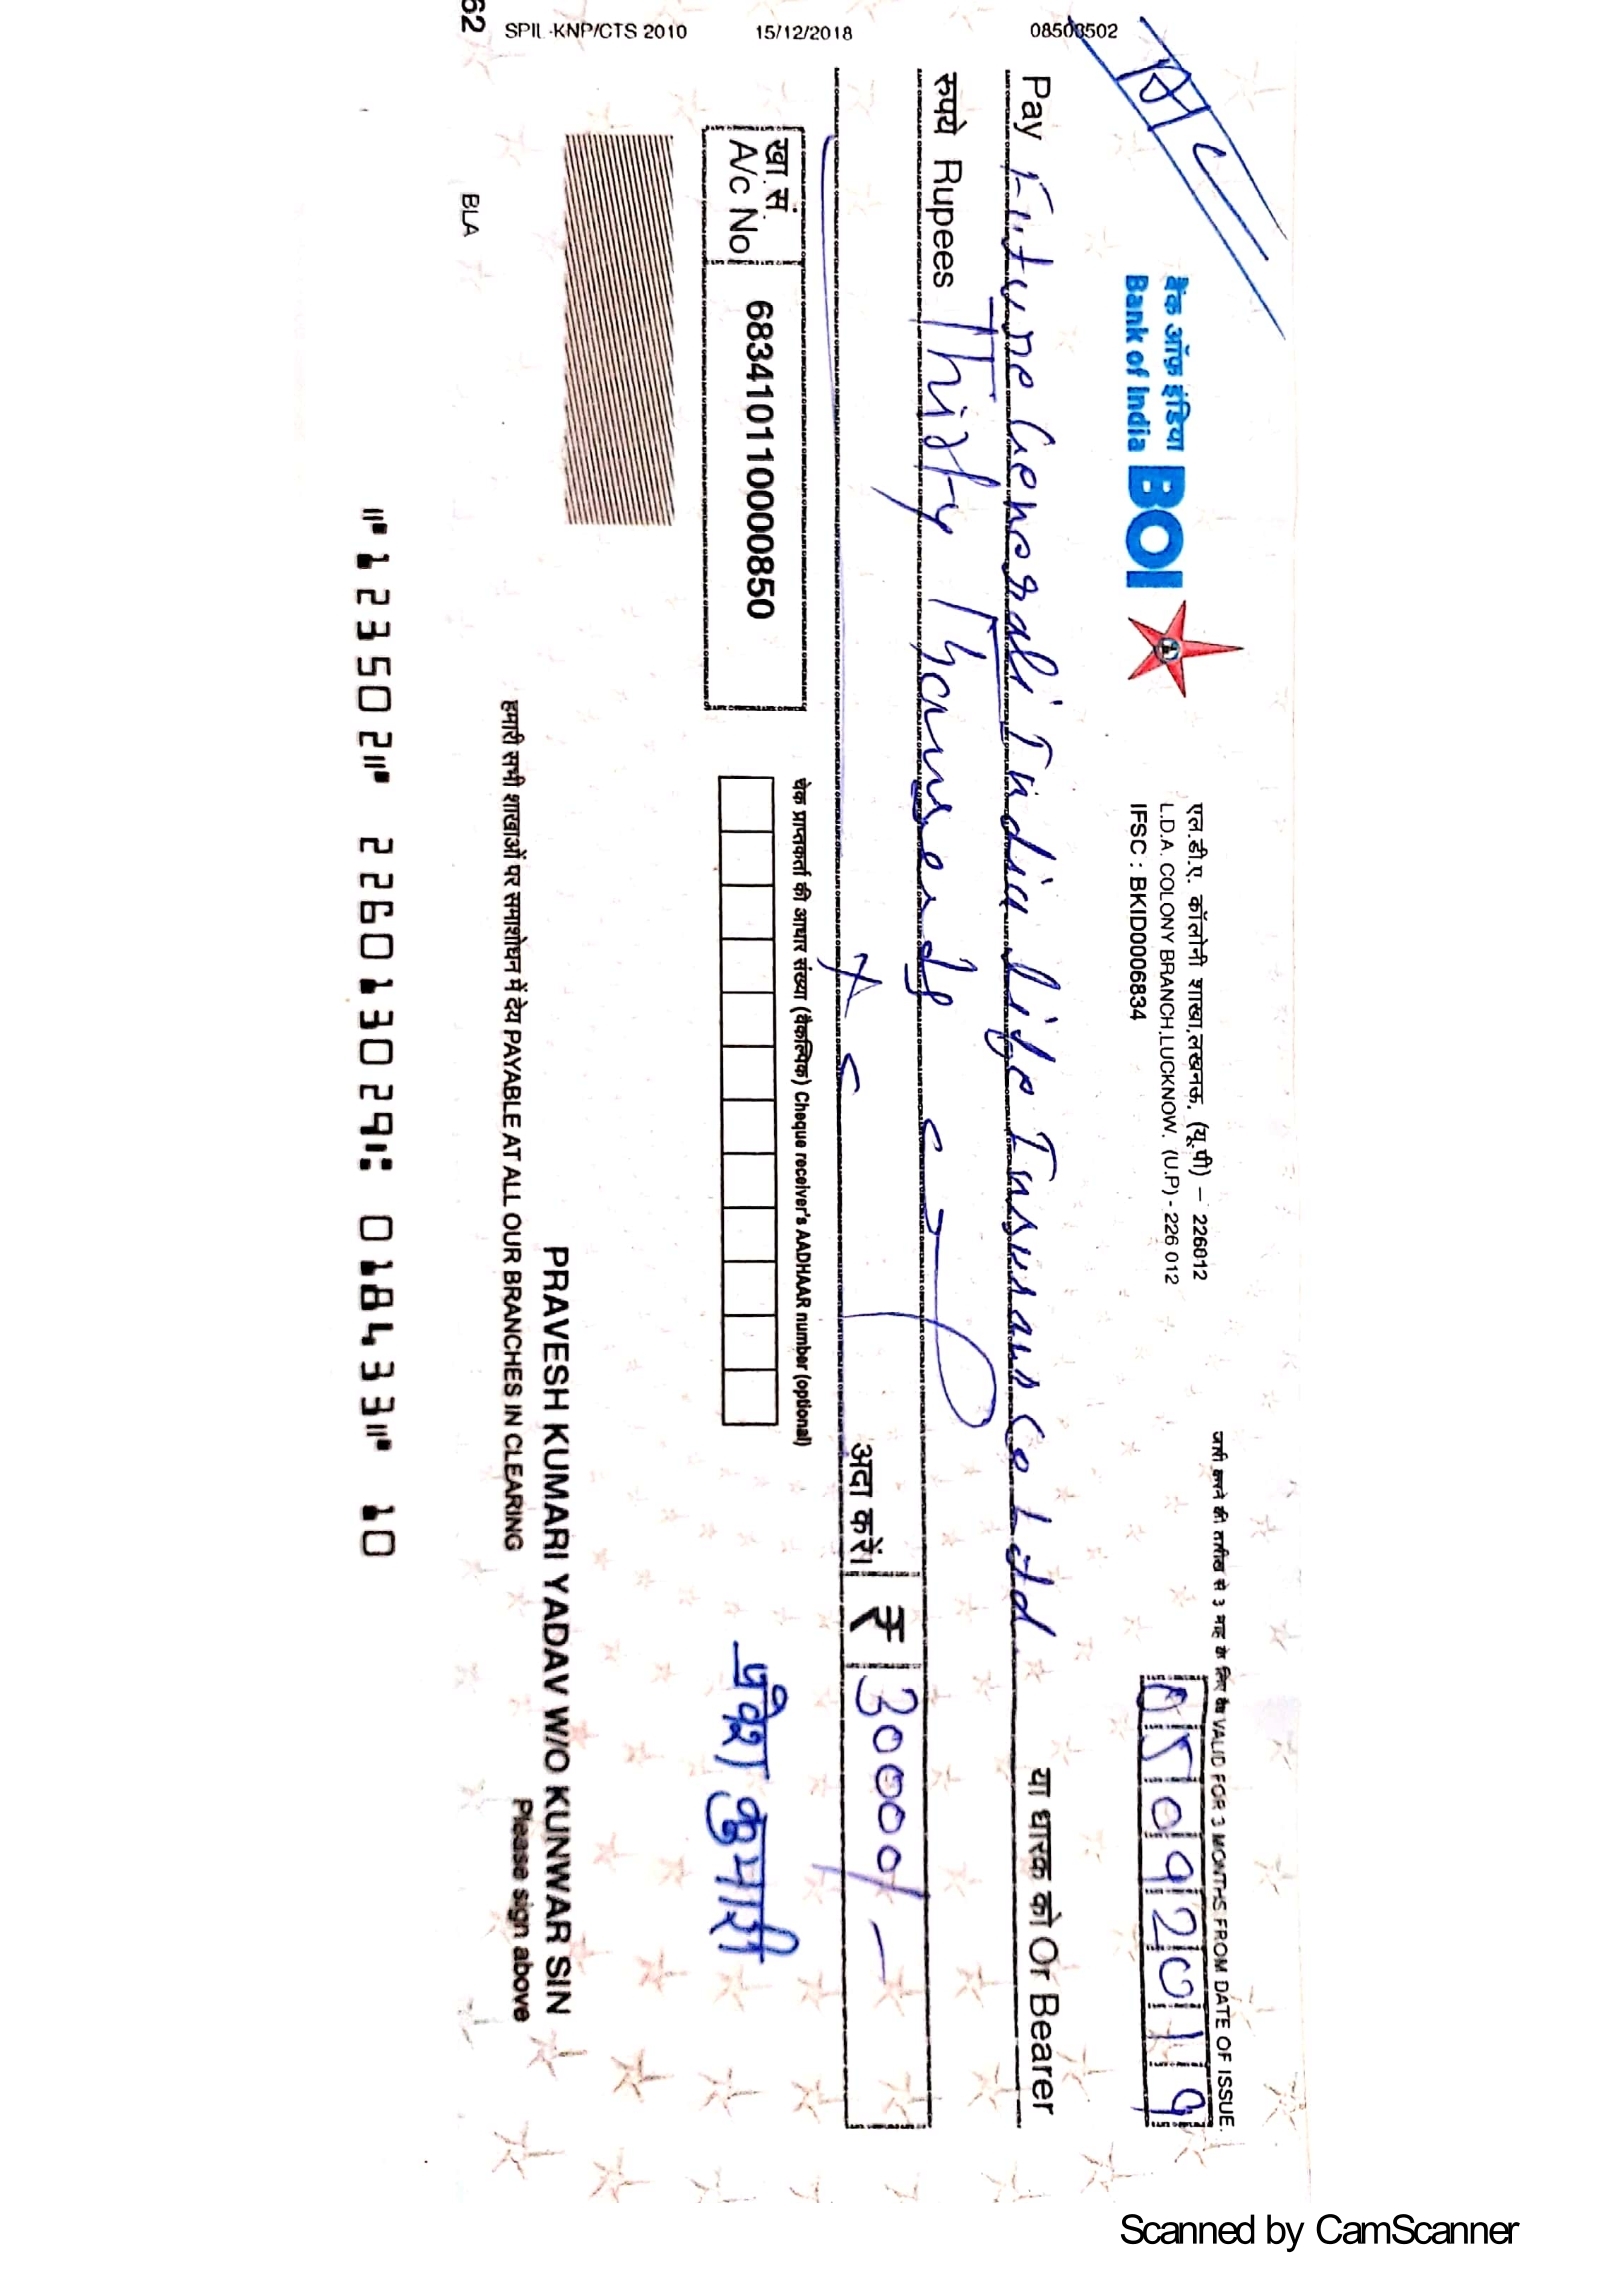 A/C
बैंक ऑफ़ इंडिया
Bank of India BOI
एल.डी.ए. कॉलोनी शाखा,लखनऊ, (यू.पी) – 226012
L.D.A. COLONY BRANCH,LUCKNOW. (U.P) - 226 012
IFSC : BKID0006834
जारी करने की तारीख से 3 माह के लिए वैध VALID FOR 3 MONTHS FROM DATE OF ISSUE.
05092019
Pay Future Generali India Life Insurance Co Ltd या धारक को Or Bearer
रुपये Rupees Thirty Thousands
अदा करें। ₹ 30000/-
खा.सं. A/c No. 683410110000850
चेक प्राप्तकर्ता की आधार संख्या (वैकल्पिक) Cheque receiver's AADHAAR number (optional)
प्रवेश कुमारी
PRAVESH KUMARI YADAV W/O KUNWAR SIN
Please sign above
हमारी सभी शाखाओं पर समाशोधन में देय PAYABLE AT ALL OUR BRANCHES IN CLEARING
BLA
⑈123502⑈ 226013029⑆ 018433⑈ 10
62 SPIL-KNP/CTS 2010 15/12/2018 08503502
Scanned by CamScanner